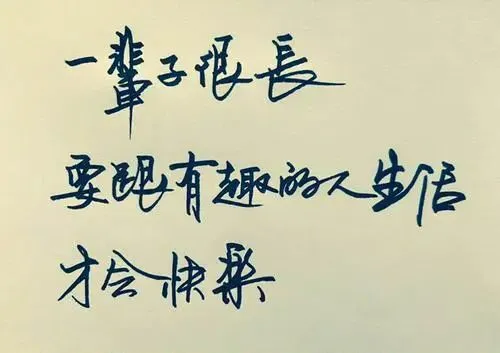 一輩子很長
要跟有趣的人生活
才会快樂